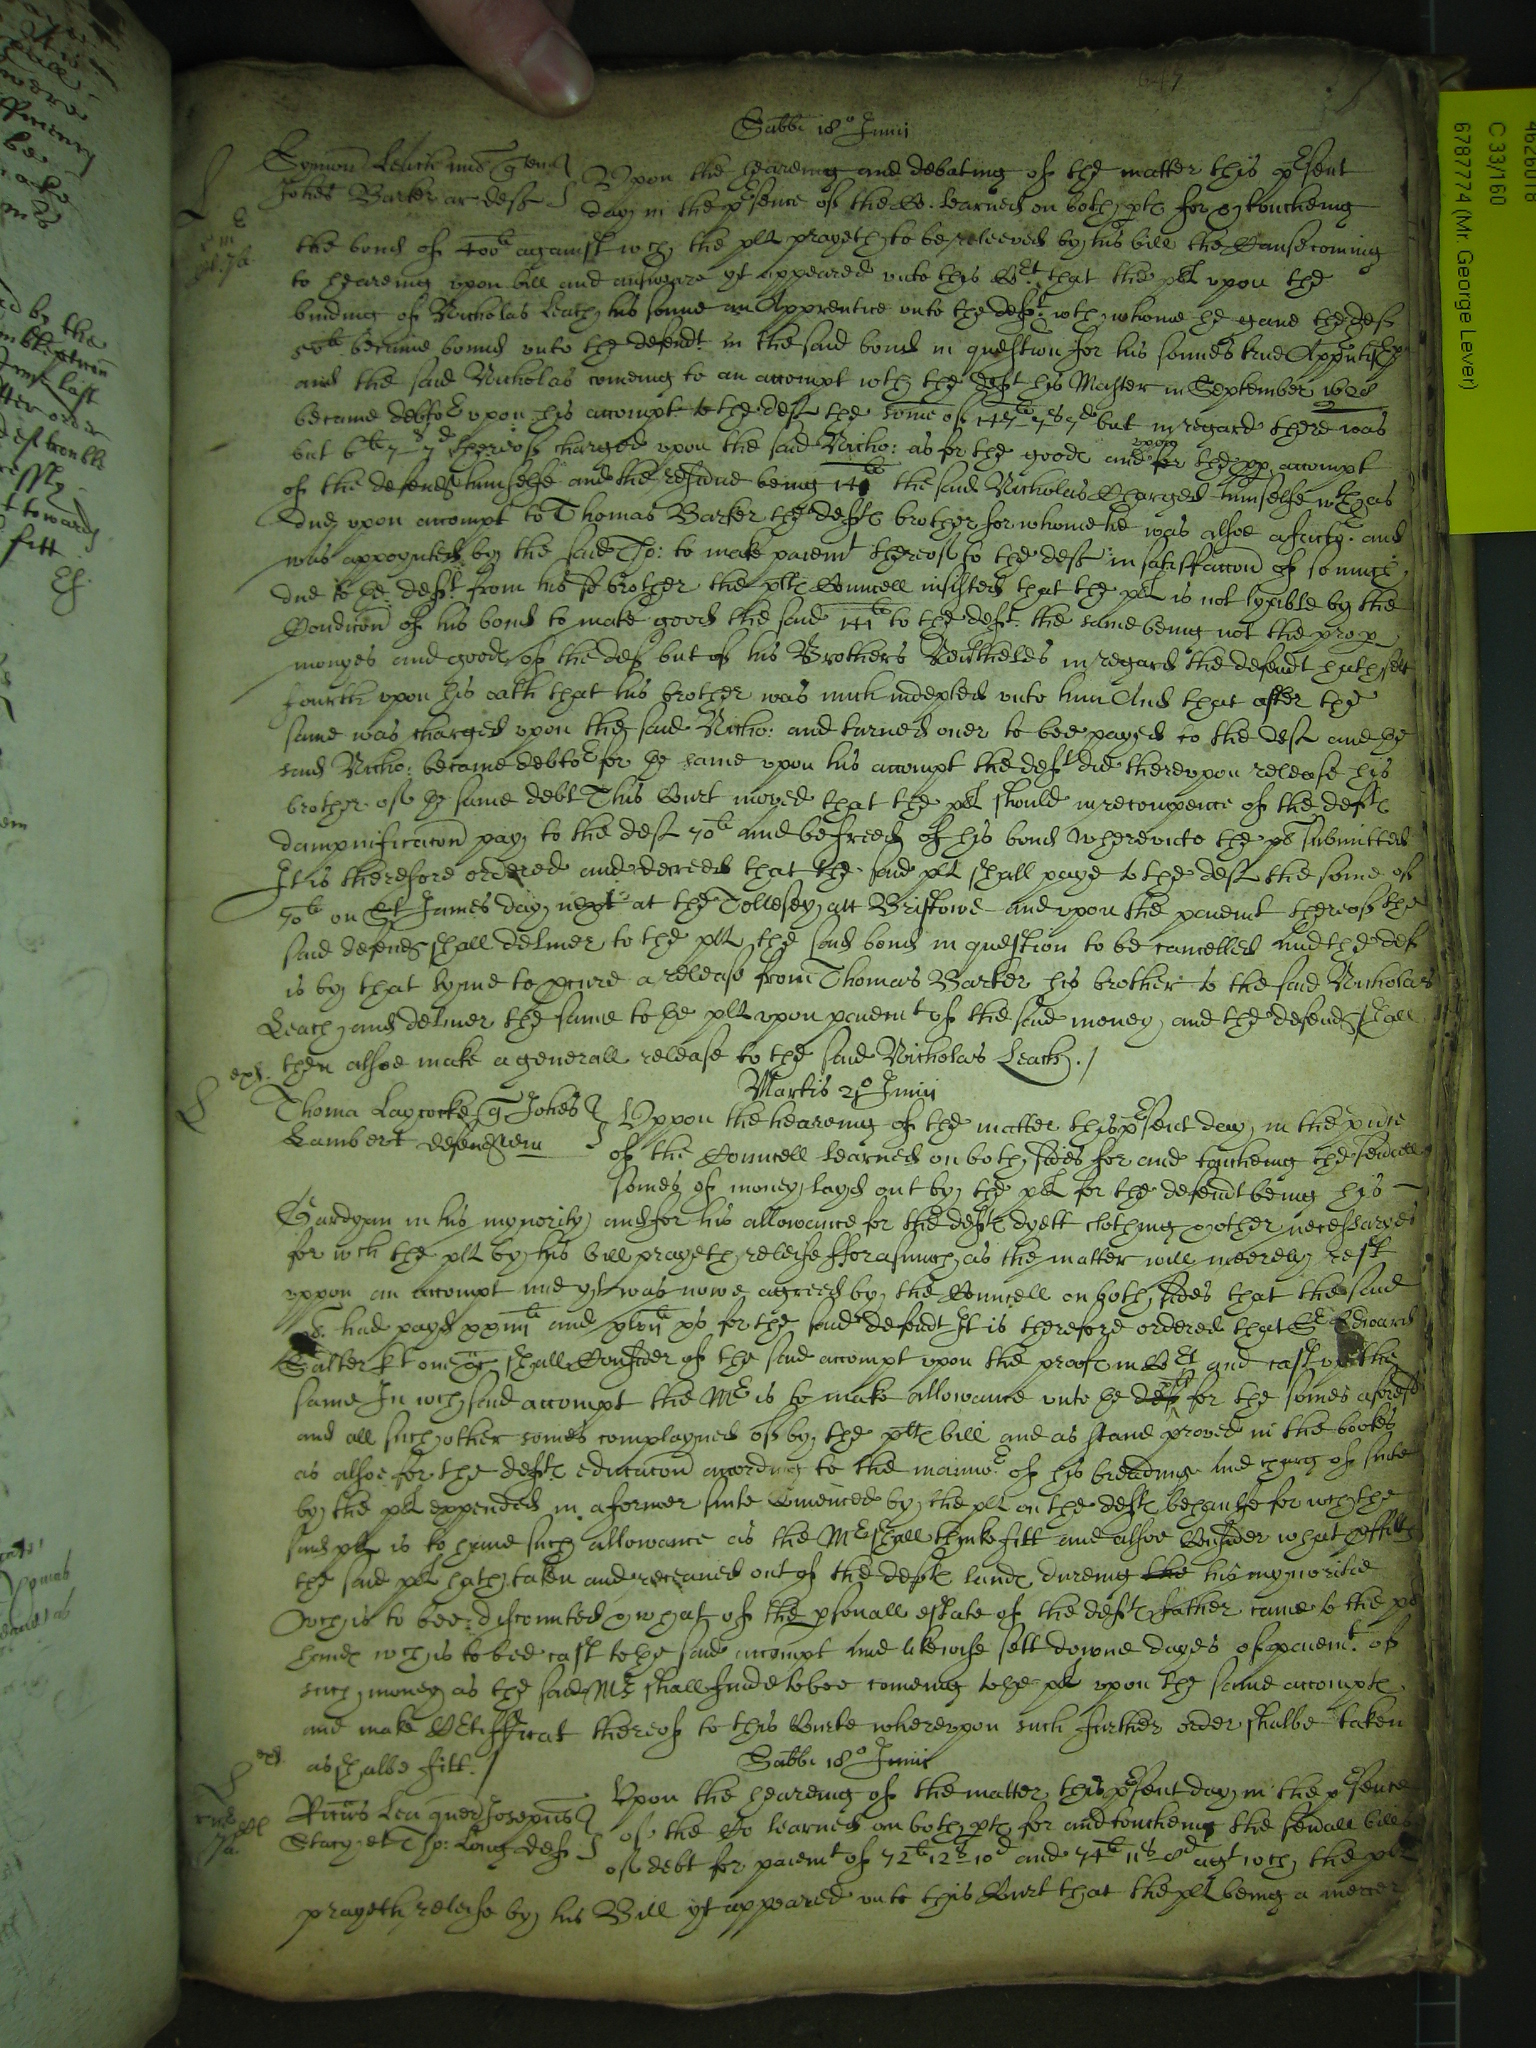 647
Sabbi 18o Junii
Symon Leach
Johes Barker ar deft
Upon the heareing and debating of the matter this psent
day in the psence of the Co: learned on both ptes for & toucheing
the bond of 400li against wch the plt prayeth to be releeved by his bill the Cause coming
to heareing upon bill and answeare yt appeared unto this Cort that the plt upon the
binding of Nicholas Leach his sonne an Apprentice unto the deft: wth whome he gave the deft
50li became bound unto the defendt in the said bond in question for his sonnes true Apprntishp
and the said Nicholas comeing to an accompt wth the deft his Master in September 1608
became debtor upon his accompt to the deft the some of 147li 7s 7d but in regard there was
but 6li 7s 7d thereof charged upon the said Nicho: as for the goodes and upon for the pp accompt
of the defend himselfe and the residue being 141li the said Nicholas Charged himselfe wth as
due upon accompt to Thomas Barker the deftes brother for whome he was alsoe a factor and
was appoynted by the said Tho: to make paiemt thereof to the deft in satisfaccon of so much
due to the deft from his sd brother the pltes Councell insisted that the plt is not lyable by the
Condicon of his bond to make good the said 141li to the deft the same being not the prop
monyes and goodes of the deft but of his Brothers Neverthelesse in regard the defendt hath sett
fourth upon his oath that his brother was much indepted unto him And that after the
same was charged upon the said Nicho: and turned over to bee payed to the deft and he
said Nicho: became debtor for the same upon his accompt the deft did thereupon release his
brother of the same debt This Court moved that the plt should in recompence of the deftes
dampnificacon pay to the deft 70li and be freed of his bond Whereunto the plt submitted
It is therefore ordered and decreed that the said plt shall paye to the deft the some of
70li on St James day next at the Tollesey att Bristowe and upon the paiemt thereof the
said defend shall deliver to the plt the said bond in question to be cancelled And the deft
is by that tyme to pcure a release from Thomas Barker his brother to the said Nicholas
Leach and deliver the same to the plt upon paiemt of the said money and the defend shall
then alsoe make a generall release to the said Nicholas Leach./
exd.
Martis 21o Junii
Thoma Laycocke q Johes
Lambert defendtem
Uppon the heareing of the matter this psent day in the psnce
of the Councell learned on both sides for and toucheing the severall
somes of money layd out by the plt for the defendt being his
Gardyan in his mynority and for his allowance for the deftes dyett clothing & other necessaryes
for wch the plt by his bill prayeth releife fforasmuch as the matter will meerely rest
uppon an accompt and yt was nowe agreed by the Councell on both sides that the said
plt had payd xxiiili and for the said defendt It is therefore ordered that Sr Edward
Salter kt one &c shall Consider of the said accompt upon the proofes in Cort and cast up the
same In wch said accompt the Mr is to make allowance unto the deft plt for the somes aforesd
and all such other somes complayned of by the pltes bill and as stand proved in the bookes
as alsoe for the deftes educacon according to the mannor of his breading and charg of suite
by the plt expended in a former suite Comenced by the plt on the deftes behaulfe for wch the
said plt is to have such allowance as the Mr shall thinke fitt and alsoe Consider what pffitts
the said plt hath taken and receaved out of the deftes landes dureing the his mynoritie
wch is to bee discounted & what of the psonall estate of the deftes father came to the plts
handes wch is to bee cast to the said accompt And likewise sett downe dayes of paiemt of
such money as the said Mr shall finde to bee comeing to the plt upon the same accompte
and make Certifficat thereof to this Courte whereupon such further order shalbe taken
as shalbe fitt./
exd.
Sabbi 18o Junii
Ricus Lea quer Josephus
Stacy et Tho: Long defts
Upon the heareing of the matter this psent day in the psence
of the Co learned on both ptes for and toucheing the sevall bills
of debt for paiemt of 72li 12s 10d and 74li 11s 8d agt wch the plt
prayeth releife by his Bill yt appeared unto this Court that the plt being a mercer
4626018
C 33/160
6787774 (Mr. George Lever)